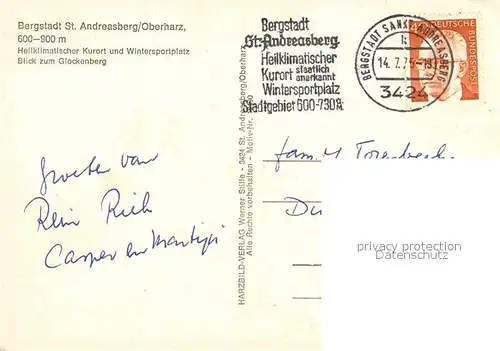 Bergstadt St. Andreasberg/Oberharz,
600—900 m
Heilklimatischer Kurort und Wintersportplatz
Blick zum Glockenberg
Bergstadt
St. Andreasberg
Heilklimatischer
Kurort staatlich anerkannt
Wintersportplatz
Stadtgebiet 600-730
BERGSTADT SANKT ANDREASBERG
14.7.75
3424
DEUTSCHE
BUNDESPOST
HARZBILD-VERLAG Werner Stille - 3424 St. Andreasberg/Oberharz
Alle Rechte vorbehalten - Motiv-Nr.
Groeten van
Rein Riek
Casper en Martijn
fam.
privacy protection
Datenschutz